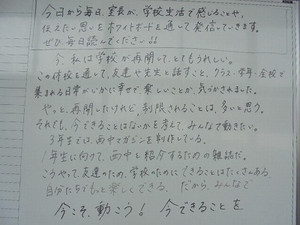 今日から毎日、室長が、学校生活で感じることや、
伝えたい思いをホワイトボードを通って発信していきます。
ぜひ、毎日読んでください!!
今、私は学校が再開して、とてもうれしい。
この休校を通って、友達や先生と話すこと、クラス・学年・全校で
集まれる日常がいかに幸せで楽しいことか、気づかされました。
やっと、再開したけれど、制限されることは、多いと思う。
それでも、今できることはなにかを考えて、みんなで動きたい。
3年生では、西中マガジンを制作している。
1年生に向けて、西中を紹介するための雑誌だ。
こうやって、友達のため、学校のためにできることはたくさんある
自分たちでもっと楽しくできる。だから、みんなで
今こそ、動こう! 今できることを